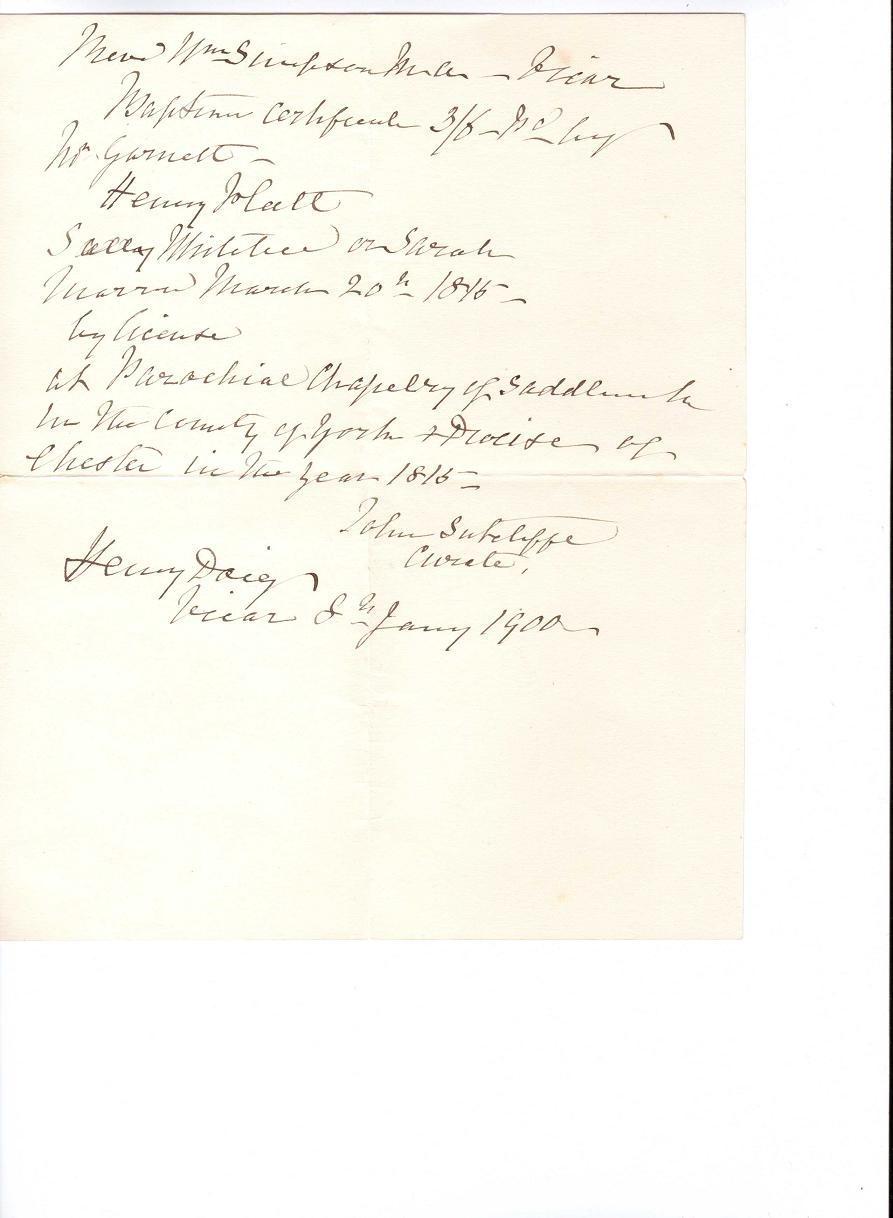 Revd Wm Simpson M.A. – Vicar
Baptism Certificate 3/6 – Pd by
Mr Garnett –
Henry Platt
Sally or Sarah
Married March 20th 1815 –
by license
at Parochial Chapelry of Saddleworth
in the County of York & Diocise of
Chester in the year 1815 –
John Sutcliffe
Curate,
Henry Doig
Vicar 8th Jany 1900